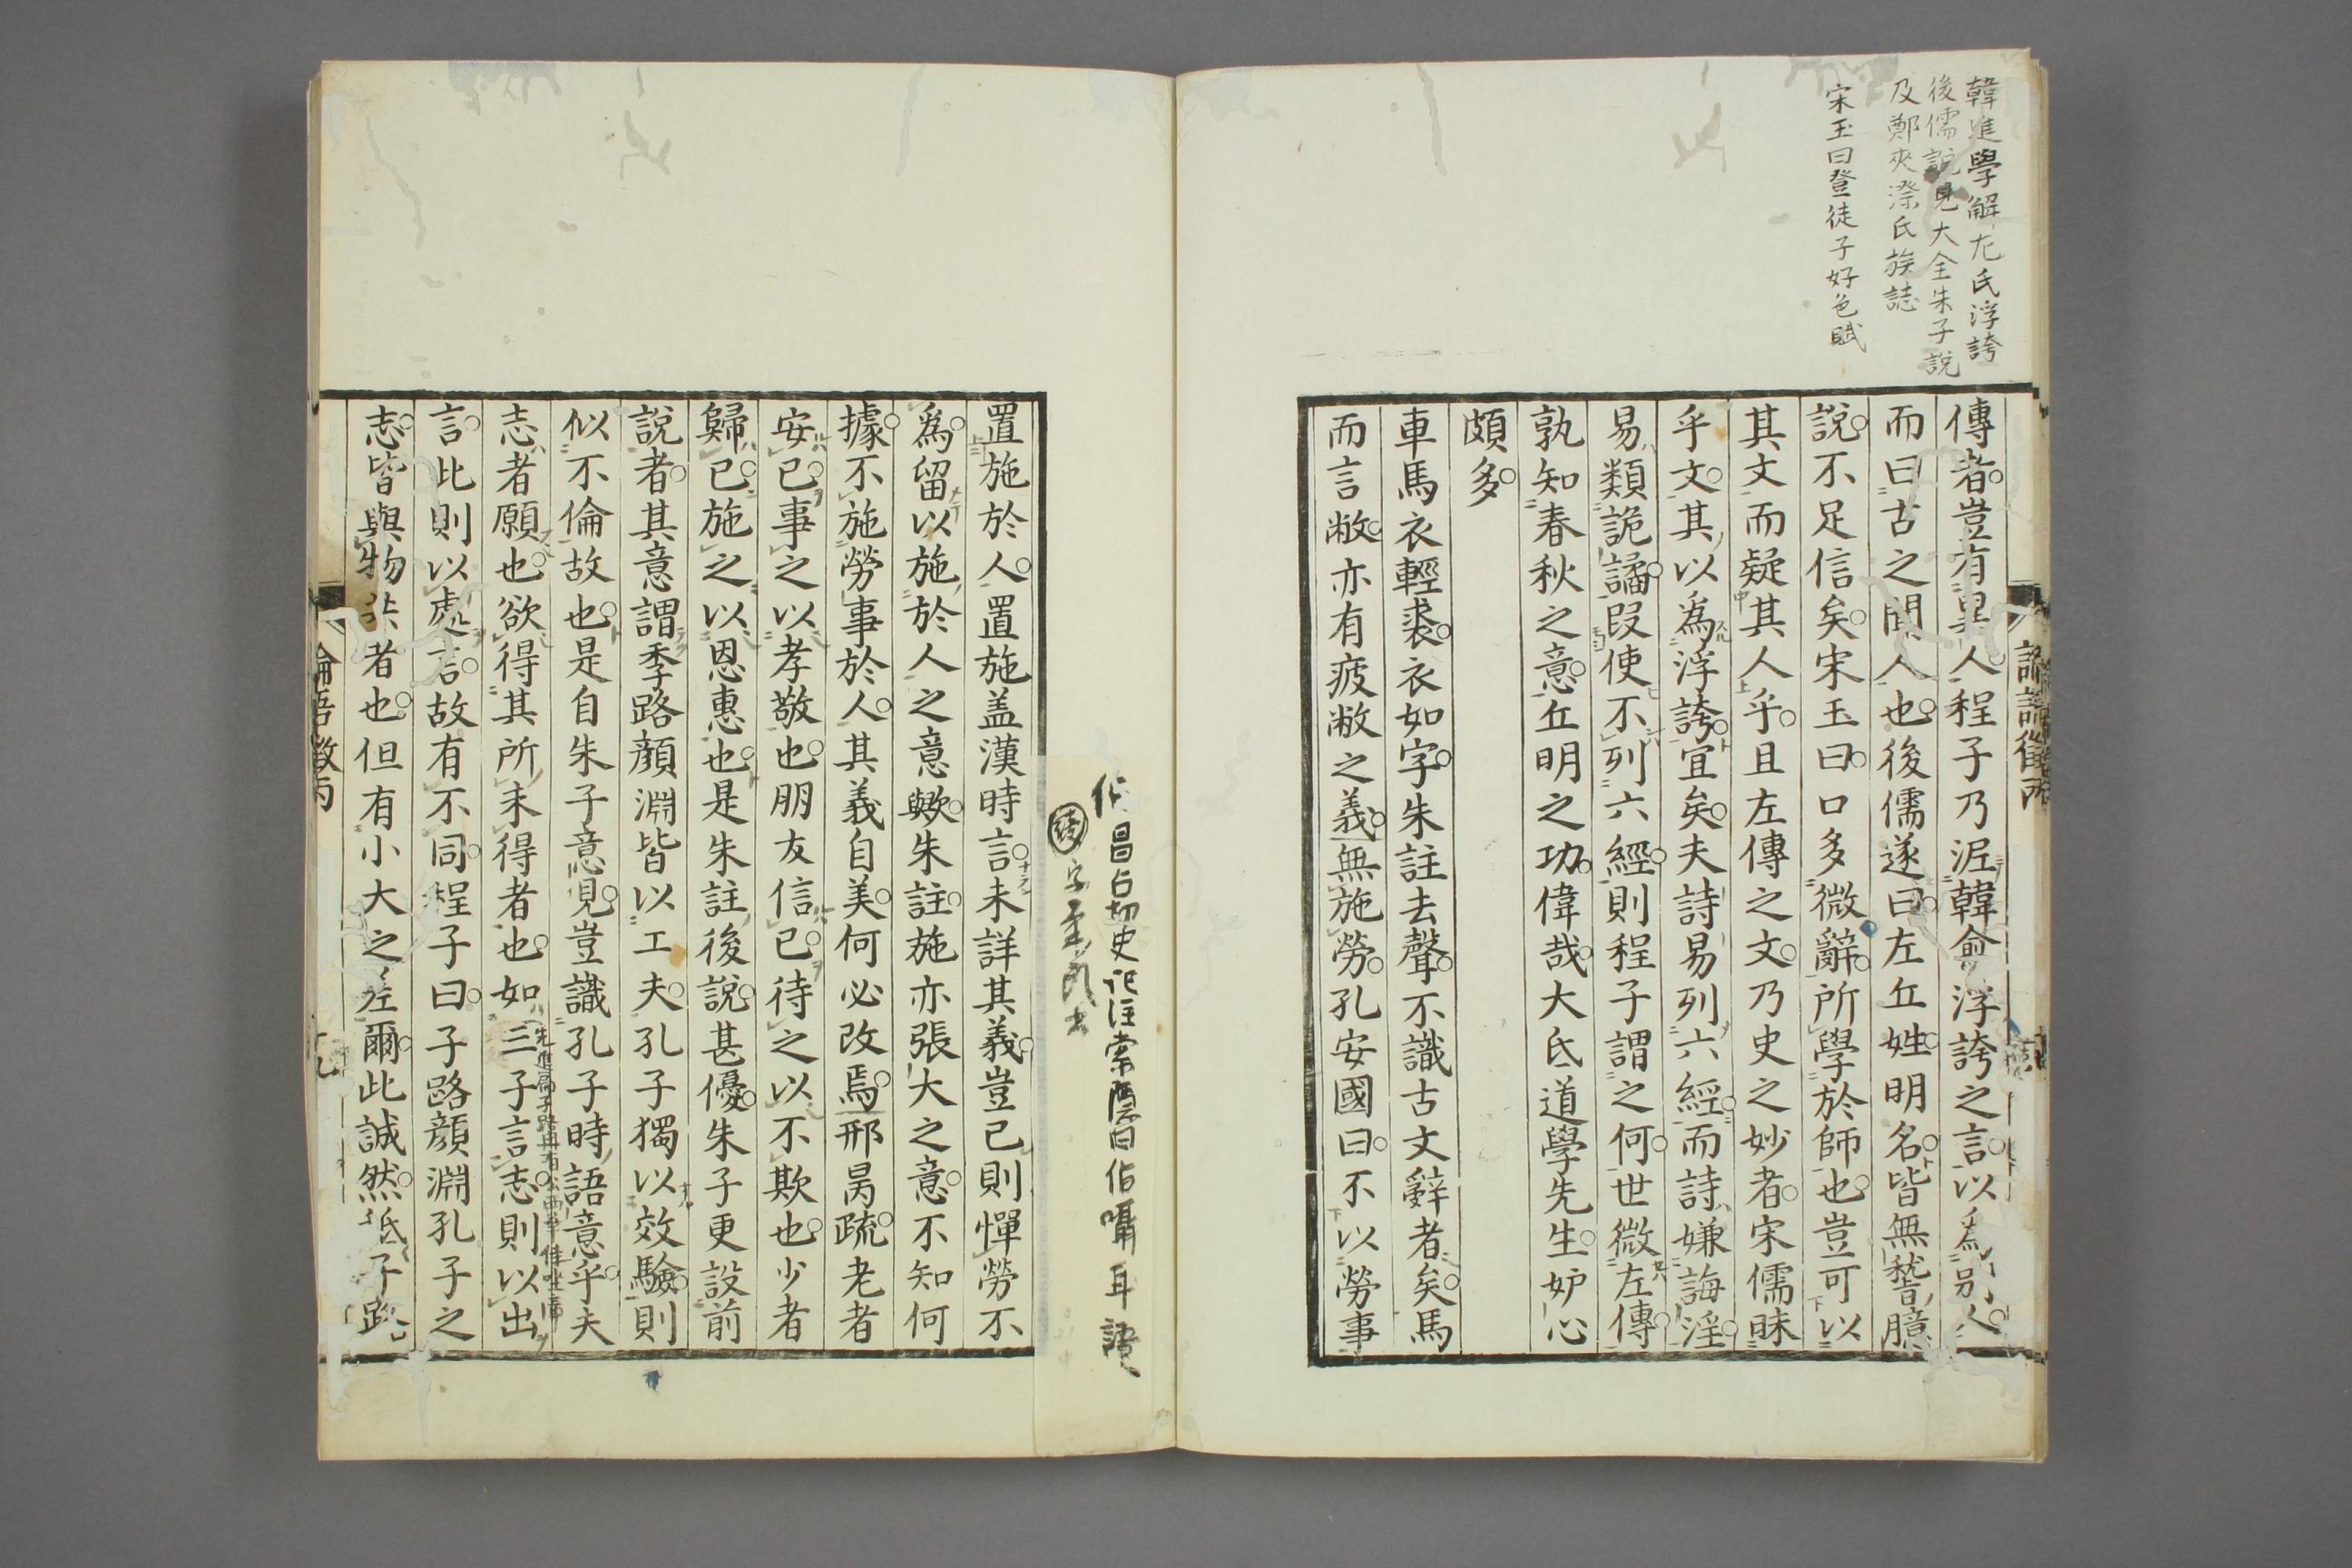 韓進學解左氏浮誇
後儒說見大全朱子說
及鄭夾漈氏族誌
宋玉曰登徒子好色賦
傳者豈有異人程子乃泥韓愈浮誇之言以爲別人
而曰古之聞人也後儒遂曰左丘姓明名皆無稽臆
說不足信矣宋玉曰口多微辭所學於師也豈可以
其文而疑其人乎且左傳之文乃史之妙者宋儒昧
乎文其以爲浮誇宜矣夫詩易列六經而詩嫌誨淫
易類詭譎叚使不列六經則程子謂之何世微左傳
孰知春秋之意丘明之功偉哉大氐道學先生妒心
頗多
車馬衣輕裘衣如字朱註去聲不識古文辭者矣馬
而言敝亦有疲敝之義無施勞孔安國曰不以勞事
置施於人置施盖漢時言未詳其義豈己則憚勞不
爲留以施於人之意歟朱註施亦張大之意不知何
據不施勞事於人其義自美何必改焉邢昺疏老者
安己事之以孝敬也朋友信己待之以不欺也少者
歸己施之以恩惠也是朱註後說甚優朱子更設前
說者其意謂季路顏淵皆以工夫孔子獨以效驗則
似不倫故也是自朱子意見豈識孔子時語意乎夫
志者願也欲得其所未得者也如三子言志則以出
言此則以處言故有不同程子曰子路顏淵孔子之
志皆與物共者也但有小大之差爾此誠然祗子路
論語徵丙
十九